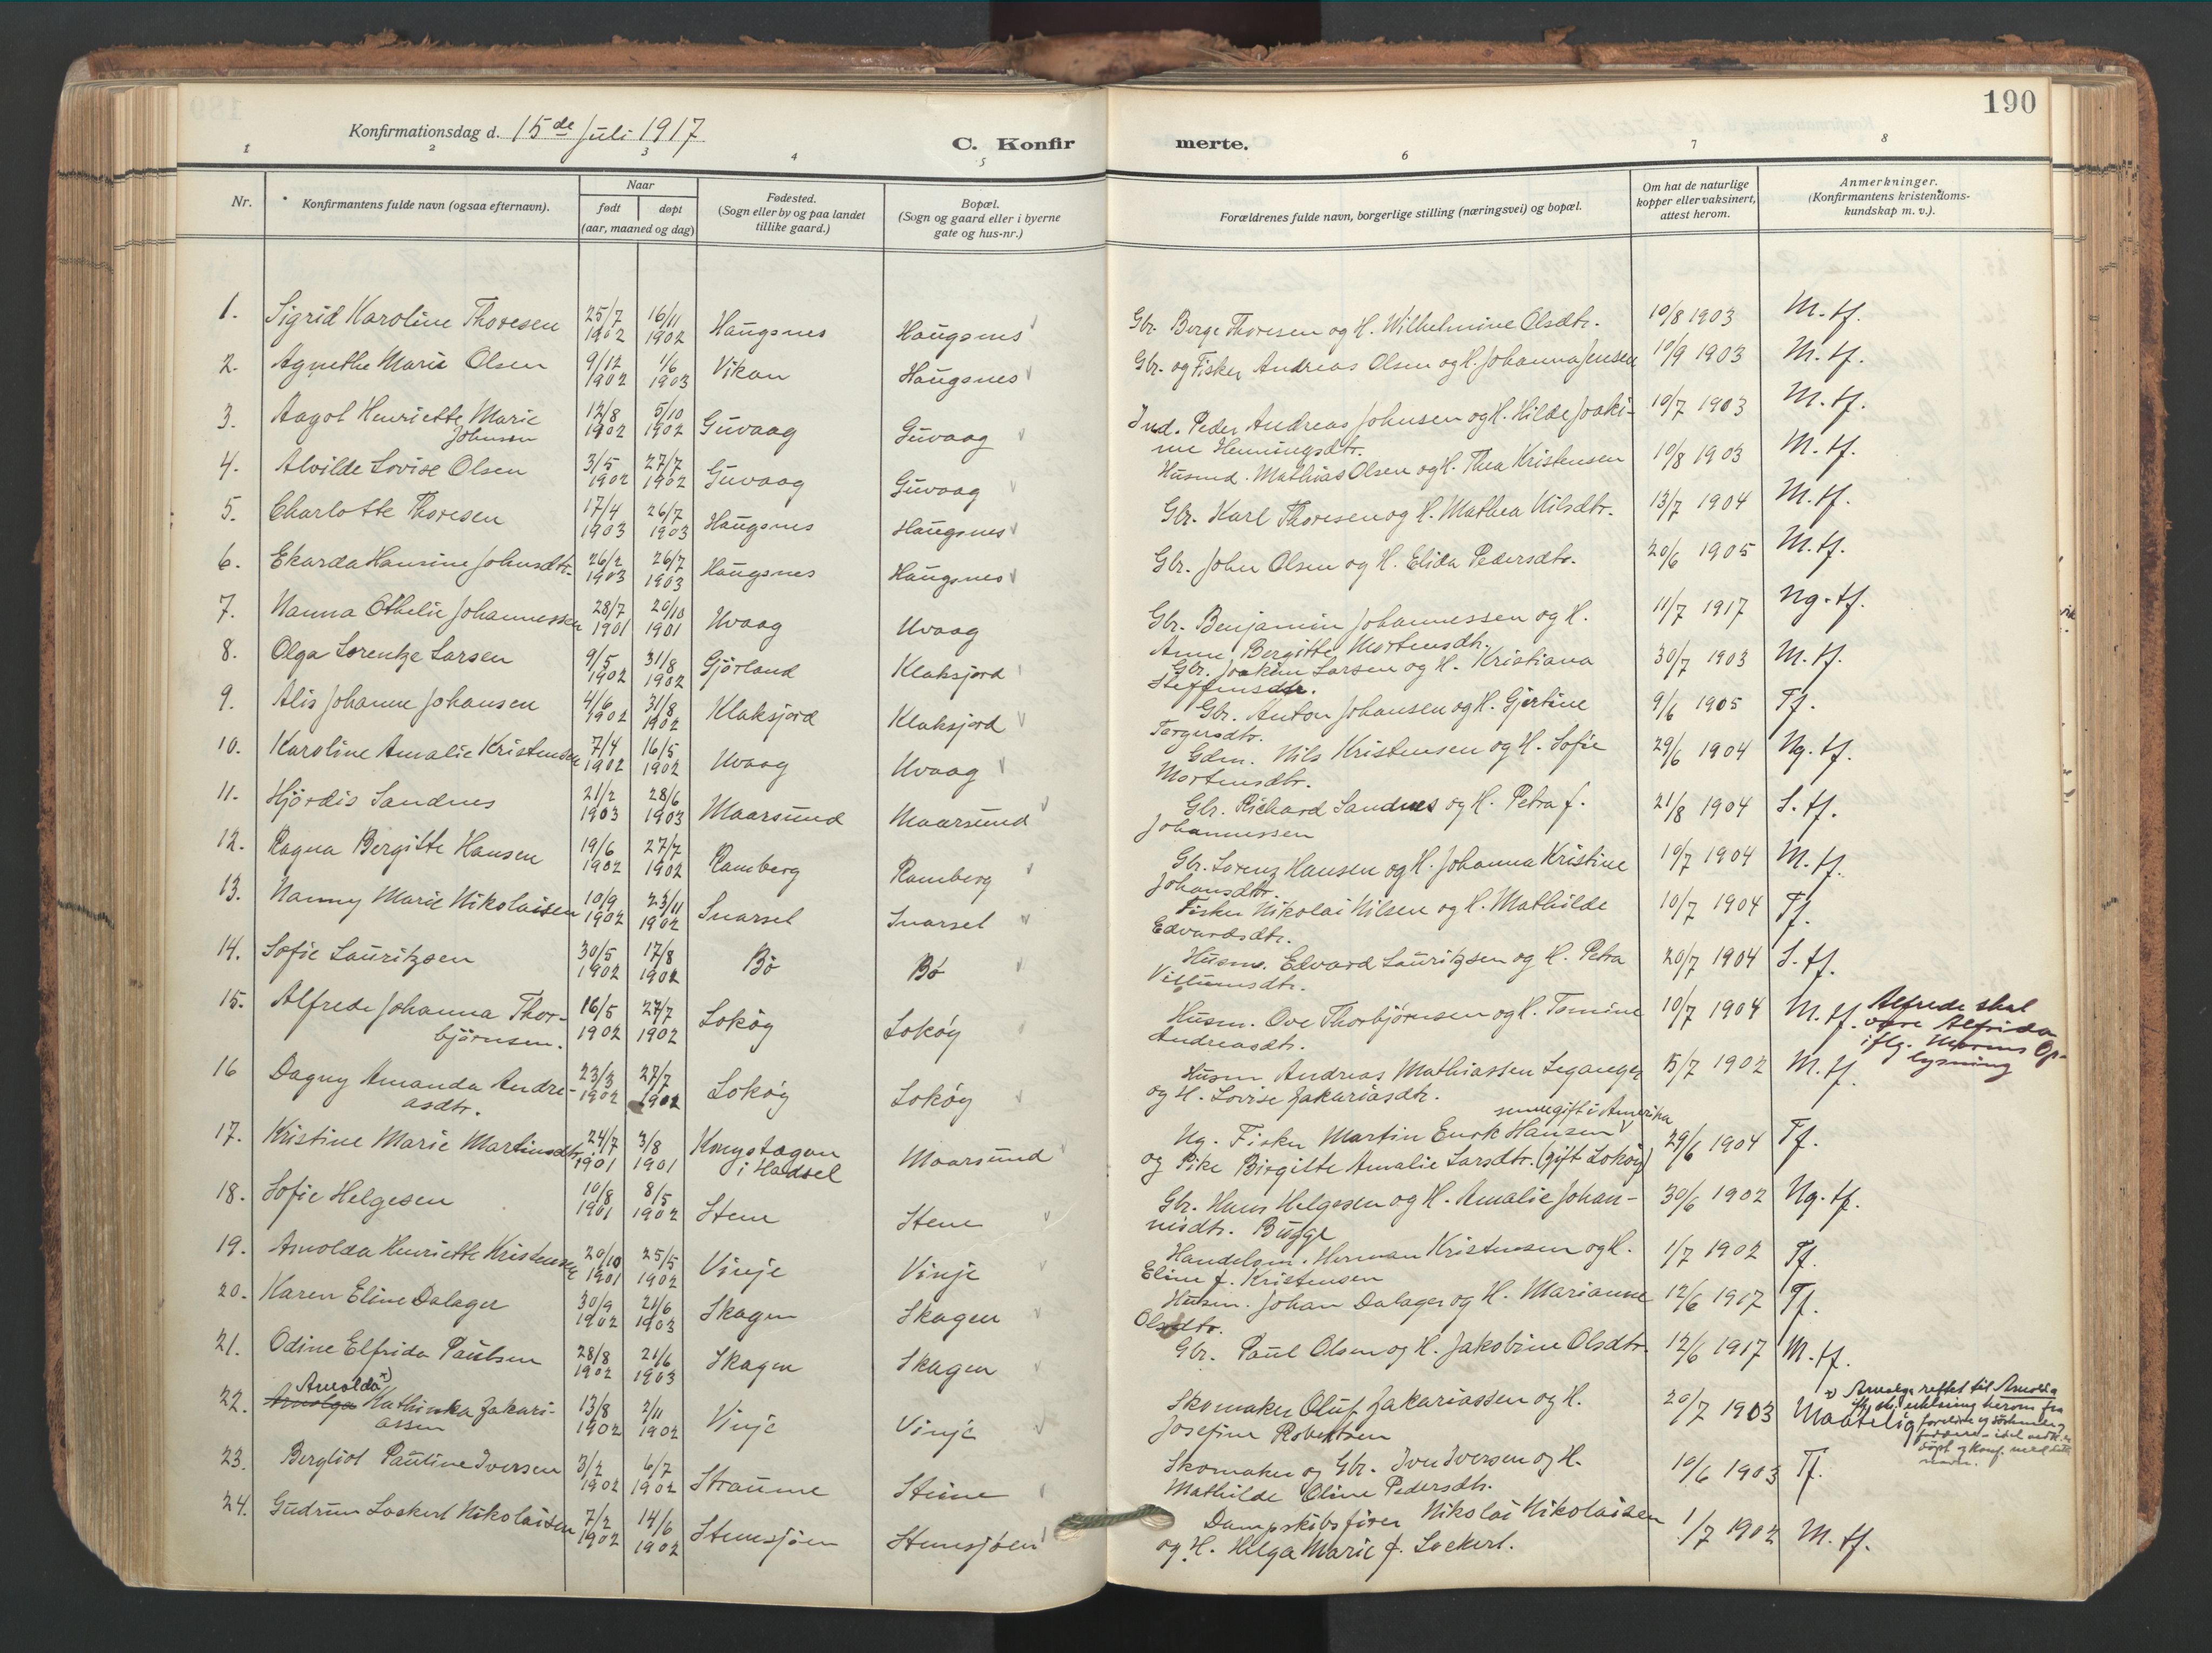 190
Konfirmationsdag d. 15de Juli 1917
C. Konfirmerte.
1 2 3 4 5 6 7 8
Nr.
Konfirmantens fulde navn (ogsaa efternavn).
Naar
født døpt
(aar, maaned og dag)
Fødested.
(Sogn eller by og paa landet
tillike gaard.)
Bopæl.
(Sogn og gaard eller i byerne
gate og hus-nr.)
Forældrenes fulde navn, borgerlige stilling (næringsvei) og bopæl.
Om hat de naturlige
kopper eller vaksinert,
attest herom.
Anmerkninger.
(Konfirmantens kristendoms-
kundskap m. v.).
1. Sigrid Karoline Thoresen 25/7 1902 16/11 1902 Haugsnes Haugsnes Gbr. Berge Thoresen og H. Wilhelmine Olsdtr. 10/8 1903 M. tf.
2. Agnethe Marie Olsen 9/12 1902 1/6 1903 Vikan Haugsnes Gbr. og Fisker Andreas Olsen og H. Johanna Jensen 10/9 1903 M. tf.
3. Aagot Henriette Marie 12/8 1902 5/10 1902 Guvaag Guvaag Ind. Peder Andreas Johnsen og H. Hilde Joaki- 10/7 1903 M. tf.
Johnsen
ne Henningsdtr.
4. Alvilde Lovise Olsen 3/5 1902 27/7 1902 Guvaag Guvaag Husmd. Mathias Olsen og H. Thea Kristensen 10/8 1903 M. tf.
5. Charlotte Thoresen 17/4 1903 26/7 1903 Haugsnes Haugsnes Gbr. Karl Thoresen og H. Mathea Nilsdtr. 13/7 1904 M. tf.
6. Ekarda Hansine Johnsdtr. 26/2 1903 26/7 1903 Haugsnes Haugsnes Gbr. John Olsen og H. Elida Pedersdtr. 20/6 1905 M. tf.
7. Nanna Othelie Johannessen 28/7 1901 20/10 1901 Uvaag Uvaag Gbr. Benjamin Johannessen og H. 11/7 1917 Ng. tf.
Anne Bergitte Mortensdtr.
8. Olga Lorentze Larsen 9/5 1902 31/8 1902 Gjørland Klaksjord Gbr. Joakim Larsen og H. Kristiana 30/7 1903 M. tf.
Steffensdtr.
9. Alis Johanne Johansen 4/6 1902 31/8 1902 Klaksjord Klaksjord Gbr. Anton Johansen og H. Gjertine 9/6 1905 Tf.
Torgersdtr.
10. Karoline Amalie Kristensen 7/4 1902 16/5 1902 Uvaag Uvaag Gdm. Nils Kristensen og H. Sofie 29/6 1904 Ng. tf.
Mortensdtr.
11. Hjørdis Sandnes 21/2 1903 28/6 1903 Maarsund Maarsund Gbr. Richard Sandnes og H. Petra f. 21/8 1904 S. tf.
Johannessen
12. Ragna Bergitte Hansen 19/6 1902 27/7 1902 Ramberg Ramberg Gbr. Lorenz Hansen og H. Johanna Kristine 10/7 1904 M. tf.
Johansdtr.
13. Nanny Marie Nikolaisen 10/9 1902 23/11 1902 Snarset Snarset Fisker Nikolai Nilsen og H. Mathilde 10/7 1904 Tf.
Edvardsdtr.
14. Sofie Lauritzsen 30/5 1902 17/8 1902 Bø Bø Husm. Edvard Lauritzsen og H. Petra 20/7 1904 S. tf.
Villumsdtr.
15. Alfrede Johanna Thor- 16/5 1902 27/7 1902 Lokøy Lokøy Husm. Ove Thorbjørnsen og H. Tomine 10/7 1904 M. tf. Alfrede skal
bjørnsen.
Andreasdtr.
være Alfrida
iflg. Morens Op-
lysning
16 Dagny Amanda Andre- 23/3 1902 27/7 1902 Lokøy Lokøy Husm Andreas Mathiassen Leganger 15/7 1902 M. tf.
asdtr.
og H. Lovise Zakariasdtr.
17. Kristine Marie Martinsdtr. 24/7 1901 3/8 1901 Kongstagan Maarsund Ug. Fisker Martin Enok Hansen 29/6 1904 Tf.
i Hadsel
senere gift i Amerika
og Pike Birgitte Amalie Larsdtr. (gift Lokøy)
18. Sofie Helgesen 10/8 1901 8/5 1902 Stene Stene Gbr. Hans Helgesen og H. Amalie Johan- 30/6 1902 Ng. tf.
nesdtr. Bugge
19. Arnolda Henriette Kristensen 20/10 1901 25/5 1902 Vinje Vinje Handelsm. Herman Kristensen og H. 1/7 1902 Tf.
Eline f. Kristensen
20. Karen Eline Dalager 30/9 1902 21/6 1903 Skagen Skagen Husm. Johan Dalager og H. Marianne 12/6 1917 Tf.
Olsdtr.
21. Odine Elfrida Paulsen 28/8 1902 21/6 1903 Skagen Skagen Gbr. Paul Olsen og H. Jakobine Olsdtr. 12/6 1917 M. tf.
Arnolda x)
22. Kathinka Zakari- 13/8 1902 2/11 1902 Vinje Vinje Skomaker Oluf Zakariassen og H. 20/7 1903 Maatelig
assen
Josefine Robertsen
23. Bergliot Pauline Iversen 3/2 1902 6/7 1902 Straume Steine Skomaker og Gbr. Iver Iversen og H. 10/6 1903 Tf.
Mathilde Oline Pedersdtr.
24. Gudrun Lockert Nikolaisen 7/2 1902 14/6 1902 Stenesjøen Stenesjøen Dampskibsfører Nikolai Nikolaisen 1/7 1902 M. tf.
og H. Helga Marie f. Lockert.